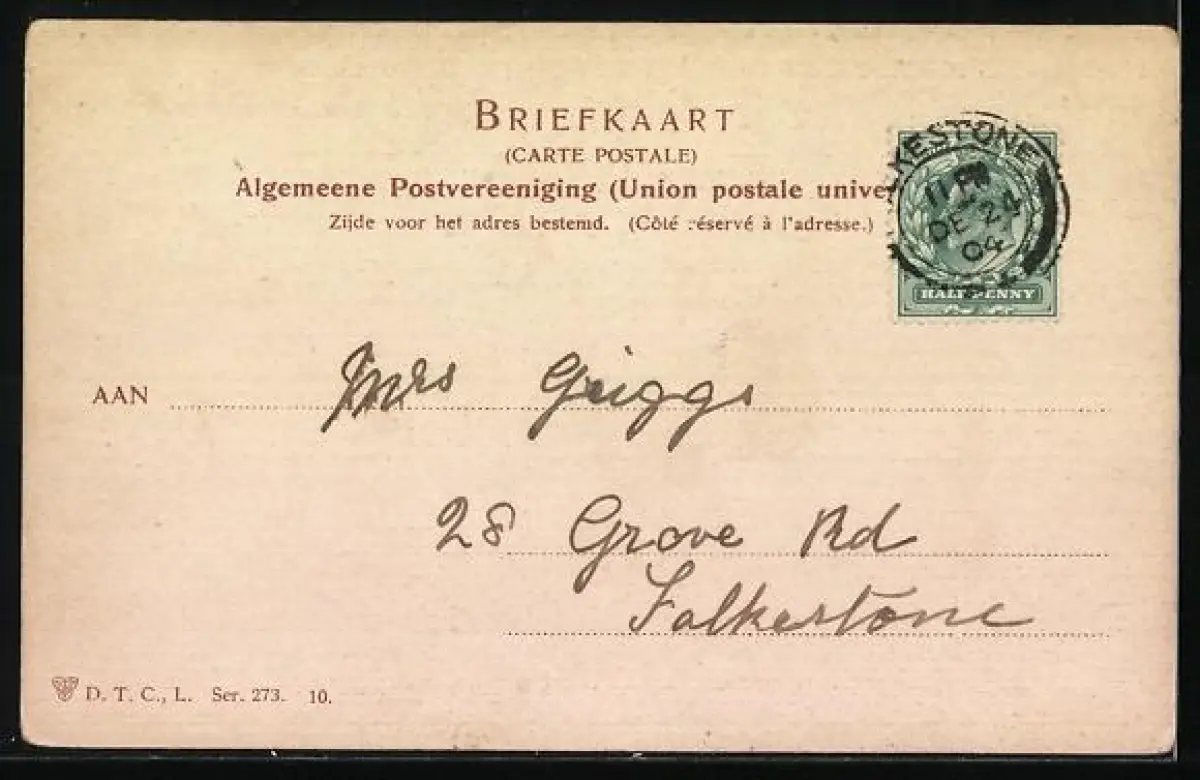 BRIEFKAART
(CARTE POSTALE)
Algemeene Postvereeniging (Union postale unive
Zijde voor het adres bestemd. (Côté réservé à l'adresse.)
LKESTONE
11 PM
DE 24
04
HALFPENNY
AAN Mrs Griggs
28 Grove Rd
Folkestone
D. T. C., L. Ser. 273. 10.